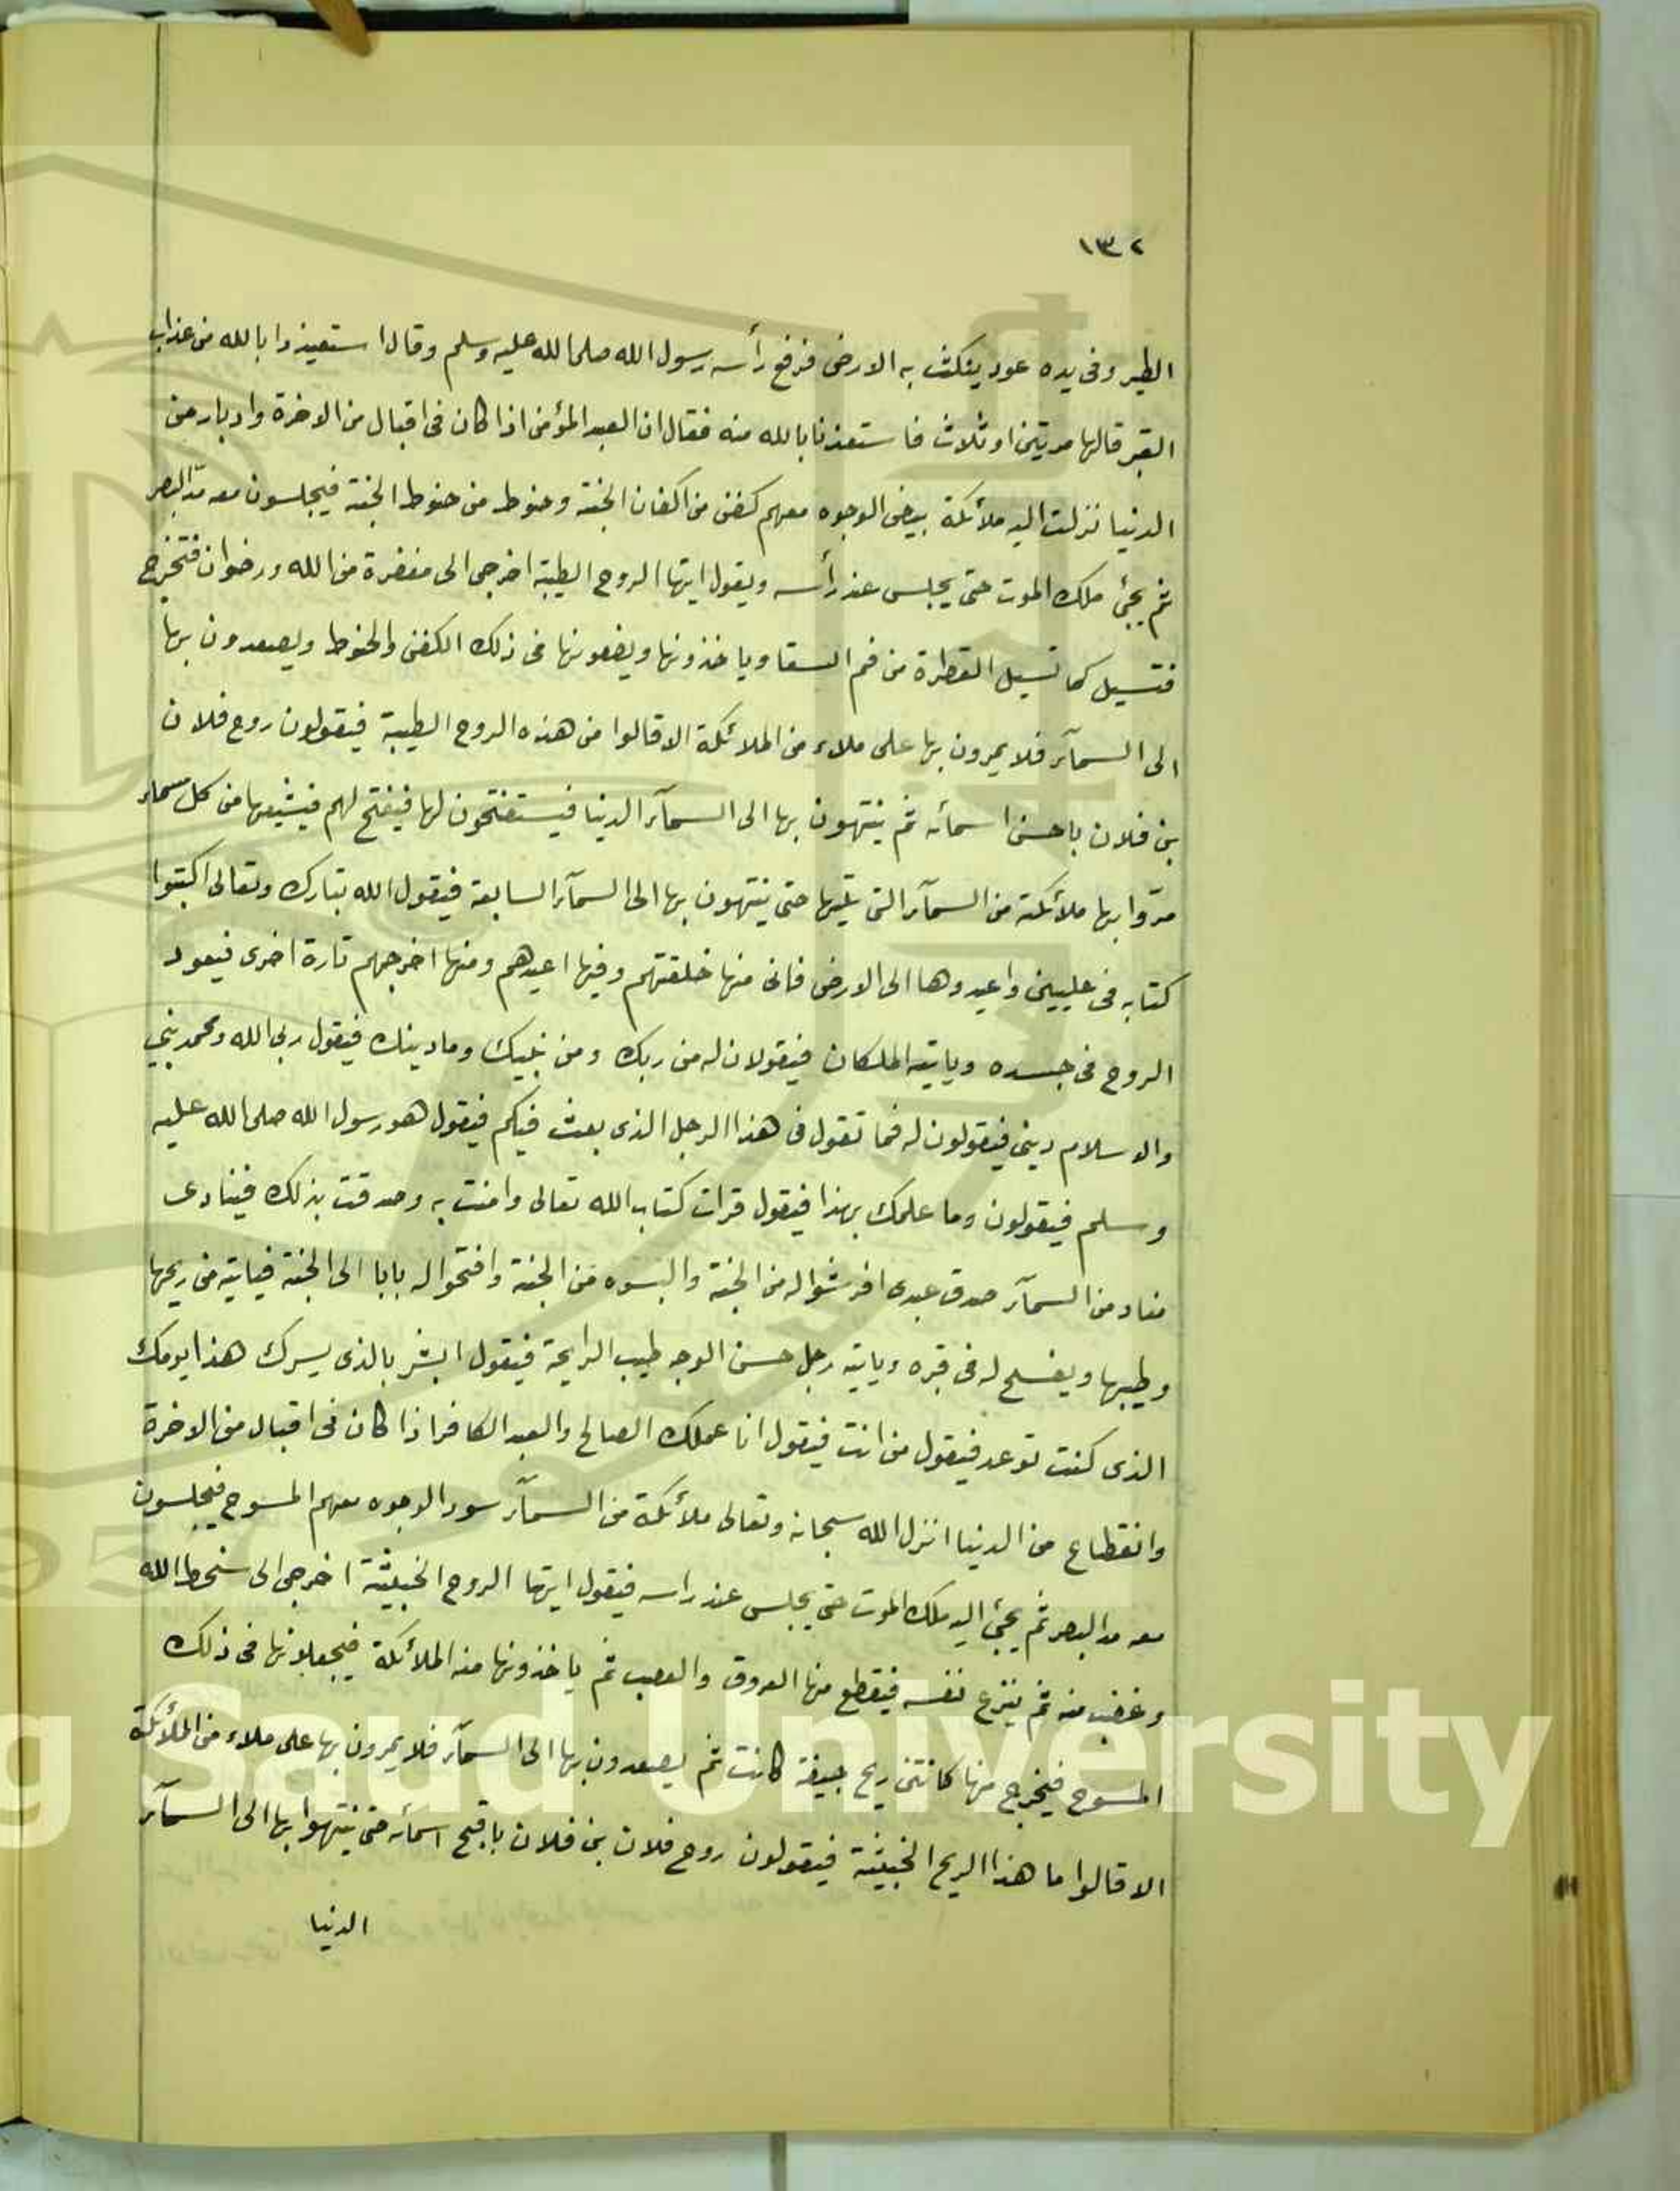 ١٣٢
الطير وفى يده عود ينكث به الارض فرفع رأسه رسول الله صلى الله عليه وسلم وقال استعيذوا بالله من عذاب
القبر قالها مرتين او ثلاث فاستعذنا بالله منه فقال ان العبد المؤمن اذا كان فى اقبال من الاخرة وادبار من
الدنيا نزلت اليه ملائكة بيض الوجوه معهم كفن من اكفان الجنة وحنوط من حنوط الجنة فيجلسون معه مدّ البصر
ثم يجئ ملك الموت حتى يجلس عند رأسه ويقول ايتها الروح الطيبة اخرجى الى مغفرة من الله ورضوان فتخرج
فتسيل كما تسيل القطرة من فم السقا وياخذونها ويضعونها فى ذلك الكفن والحنوط ويصعدون بها
الى السمآء فلا يمرون بها على ملاء من الملائكة الا قالوا من هذه الروح الطيبة فيقولون روح فلان
بن فلان باحسن اسمائه ثم ينتهون بها الى السمآء الدنيا فيستفتحون لها فيفتح لهم فيشيعها من كل سماء
مرّوا بها ملائكته من السمآء التى تليها حتى ينتهون بها الى السمآء السابعة فيقول الله تبارك وتعالى اكتبوا
كتابه فى عليين واعيدوها الى الارض فانى منها خلقتهم وفيها اعيدهم ومنها اخرجهم تارة اخرى فيعود
الروح فى جسده وياتيه الملكان فيقولان له من ربك ومن نبيك وما دينك فيقول ربى الله ومحمد نبيى
والاسلام دينى فيقولون له فما تقول فى هذا الرجل الذى بعث فيكم فيقول هو رسول الله صلى الله عليه
وسلم فيقولون وما علمك بهذا فيقول قرات كتاب الله تعالى وامنت به وصدقت بذلك فينادى
مناد من السمآء صدق عبدى افرشوا له من الجنة والبسوه من الجنة وافتحوا له بابا الى الجنة فياتيه من ريحها
وطيبها ويفسح له فى قبره وياتيه رجل حسن الوجه طيب الرايحة فيقول ابشر بالذى يسرك هذا يومك
الذى كنت توعد فيقول من انت فيقول انا عملك الصالح والعبد الكافر اذا كان فى اقبال من الاخرة
وانقطاع من الدنيا انزل الله سبحانه وتعالى ملائكة من السمآء سود الوجوه معهم المسوح فيجلسون
معه مد البصر ثم يجئ اليه ملك الموت حتى يجلس عند راسه فيقول ايتها الروح الخبيثة اخرجى الى سخط الله
وغضب منه ثم ينزع نفسه فيقطع منها العروق والعصب ثم ياخذونها منه الملائكة فيجعلونها فى ذلك
المسوح فيخرج منها كانتن ريح جيفة كانت ثم يصعدون بها الى السمآء فلا يمرون بها على ملاء من الملائكة
الا قالوا ما هذا الريح الخبيثة فيقولون روح فلان بن فلان باقبح اسمائه حتى ينتهوا بها الى السمآء
الدنيا
g Saud University